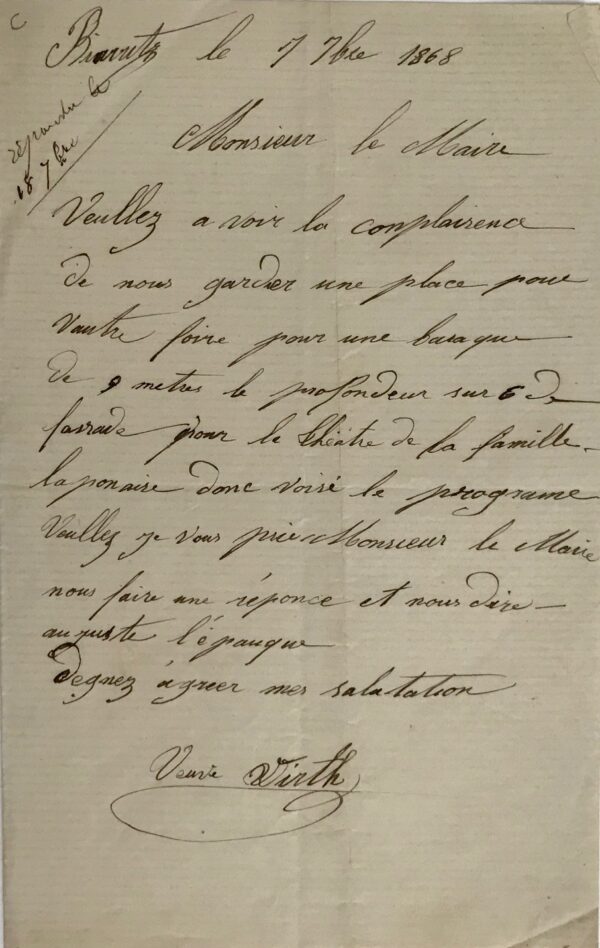 C
Biarritz le 7 7bre 1868
répondu le
18 7bre
Monsieur le Maire
Veullez a voir la conplairence
de nous gardier une place pour
Vautre foire pour une baraque
de 9 metres le profondeur sur 6 de
fassade pour le théâtre de la famille
laponaire donc voisé le programe
Veullez je vous prie Monsieur le Maire
nous faire une réponce et nous dire
auguste l'épauque
Degnez àgreer mes salutation
Veuve Wirth